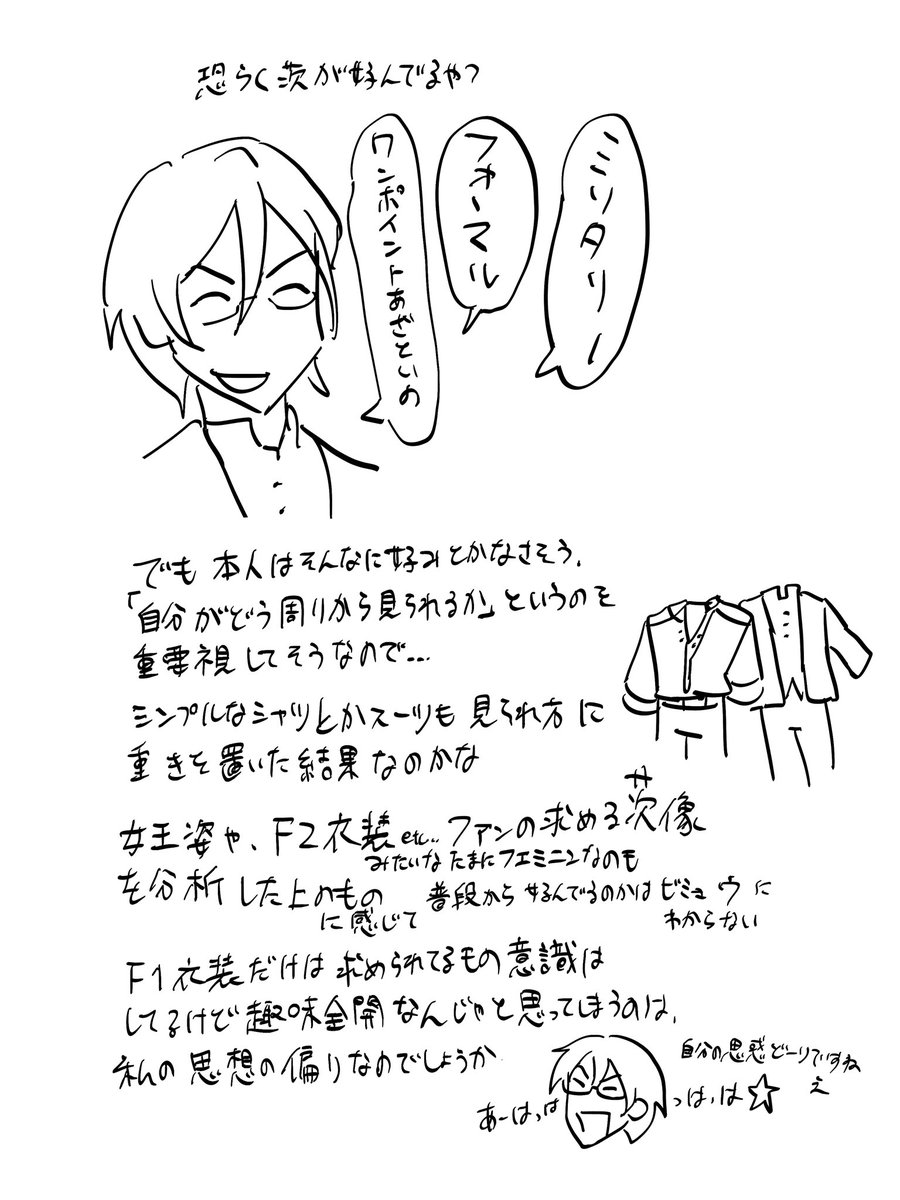 恐らく茨が好んでるやつ
ミリタリー
フォーマル
ワンポイントあざといの
でも 本人はそんなに好みとかなさそう.
「自分がどう周りから見られるか」というのを
重要視してそうなので…
シンプルなシャツとかスーツも 見られ方に
重きを置いた結果なのかな
女王姿や、F2衣装etc…ファンの求める茨像
みたいな たまにフェミニンなのも
を分析した上のもの
に感じて
普段から好んでるのかは ビミョウに
わからない
F1衣装だけは 求められてるもの意識は
してるけど趣味全開なんじゃと思ってしまうのは、
私の思想の偏りなのでしょうか
自分の思惑どーりですね
え
あーはっは
っは、は☆